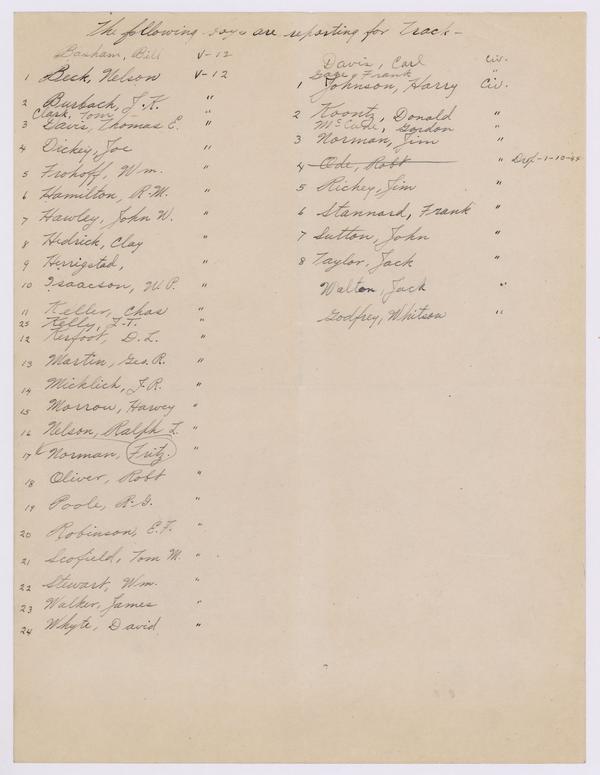 The following boys are reporting for Track -
Basham, Bill V-12
1 Beck, Nelson V-12
2 Burbach, J.K. "
Clark, Tom "
3 Davis, Thomas E. "
4 Dickey, Joe "
5 Frohoff, Wm. "
6 Hamilton, R.M. "
7 Hawley, John W. "
8 Hedrick, Clay "
9 Herrigstad, "
10 Isaacson, W.P. "
11 Keller, Chas "
25 Kelly, J.T. "
12 Kerfoot, D.L. "
13 Martin, Geo. R. "
14 Micklich, J.R. "
15 Morrow, Harvey "
16 Nelson, Ralph L. "
17 Norman, Fritz. "
18 Oliver, Robt "
19 Poole, R.G. "
20 Robinson, E.F. "
21 Scofield, Tom M. "
22 Stewart, Wm. "
23 Walker, James "
24 Whyte, David "
Davis, Carl Civ.
Gage, Frank "
1 Johnson, Harry Civ.
2 Koontz, Donald "
McCune, Gordon
3 Norman, Jim "
4 Ode, Robt " Drop-1-10-44
5 Richey, Jim "
6 Stannard, Frank "
7 Sutton, John "
8 Taylor, Jack "
Walton, Jack "
Godfrey, Whitson "